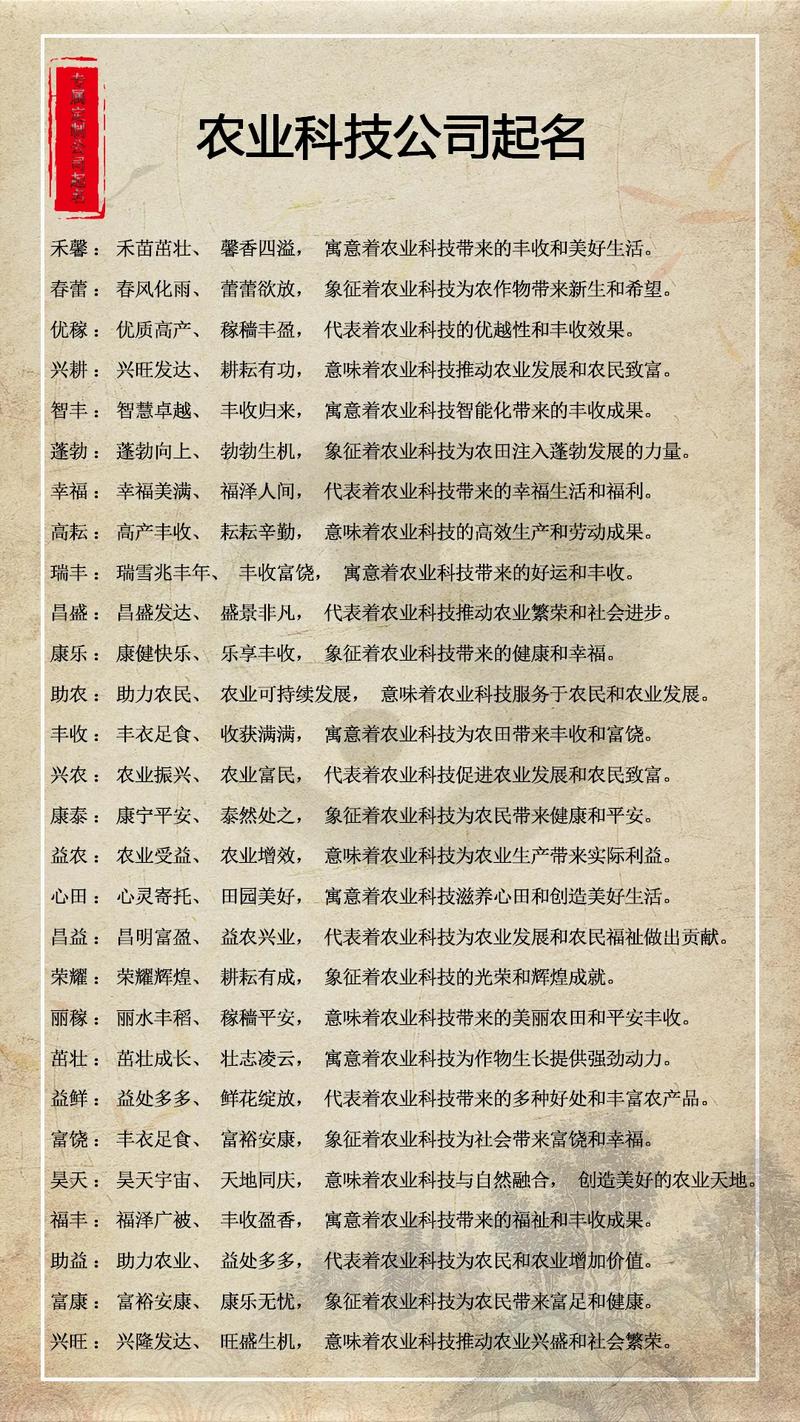 农业科技公司起名
禾馨： 禾苗茁壮、 馨香四溢， 寓意着农业科技带来的丰收和美好生活。
春蕾： 春风化雨、 蕾蕾欲放， 象征着农业科技为农作物带来新生和希望。
优稼： 优质高产、 稼穑丰盈， 代表着农业科技的优越性和丰收效果。
兴耕： 兴旺发达、 耕耘有功， 意味着农业科技推动农业发展和农民致富。
智丰： 智慧卓越、 丰收归来， 寓意着农业科技智能化带来的丰收成果。
蓬勃： 蓬勃向上、 勃勃生机， 象征着农业科技为农田注入蓬勃发展的力量。
幸福： 幸福美满、 福泽人间， 代表着农业科技带来的幸福生活和福利。
高耘： 高产丰收、 耘耘辛勤， 意味着农业科技的高效生产和劳动成果。
瑞丰： 瑞雪兆丰年、 丰收富饶， 寓意着农业科技带来的好运和丰收。
昌盛： 昌盛发达、 盛景非凡， 代表着农业科技推动农业繁荣和社会进步。
康乐： 康健快乐、 乐享丰收， 象征着农业科技带来的健康和幸福。
助农： 助力农民、 农业可持续发展， 意味着农业科技服务于农民和农业发展。
丰收： 丰衣足食、 收获满满， 寓意着农业科技为农田带来丰收和富饶。
兴农： 农业振兴、 农业富民， 代表着农业科技促进农业发展和农民致富。
康泰： 康宁平安、 泰然处之， 象征着农业科技为农民带来健康和平安。
益农： 农业受益、 农业增效， 意味着农业科技为农业生产带来实际利益。
心田： 心灵寄托、 田园美好， 寓意着农业科技滋养心田和创造美好生活。
昌益： 昌明富盈、 益农兴业， 代表着农业科技为农业发展和农民福祉做出贡献。
荣耀： 荣耀辉煌、 耕耘有成， 象征着农业科技的光荣和辉煌成就。
丽稼： 丽水丰稻、 稼穑平安， 意味着农业科技带来的美丽农田和平安丰收。
茁壮： 茁壮成长、 壮志凌云， 寓意着农业科技为作物生长提供强劲动力。
益鲜： 益处多多、 鲜花绽放， 代表着农业科技带来的多种好处和丰富农产品。
富饶： 丰衣足食、 富裕安康， 象征着农业科技为社会带来富饶和幸福。
昊天： 昊天宇宙、 天地同庆， 意味着农业科技与自然融合， 创造美好的农业天地。
福丰： 福泽广被、 丰收盈香， 寓意着农业科技带来的福祉和丰收成果。
助益： 助力农业、 益处多多， 代表着农业科技为农民和农业增加价值。
富康： 富裕安康、 康乐无忧， 象征着农业科技为农民带来富足和健康。
兴旺： 兴隆发达、 旺盛生机， 意味着农业科技推动农业兴盛和社会繁荣。